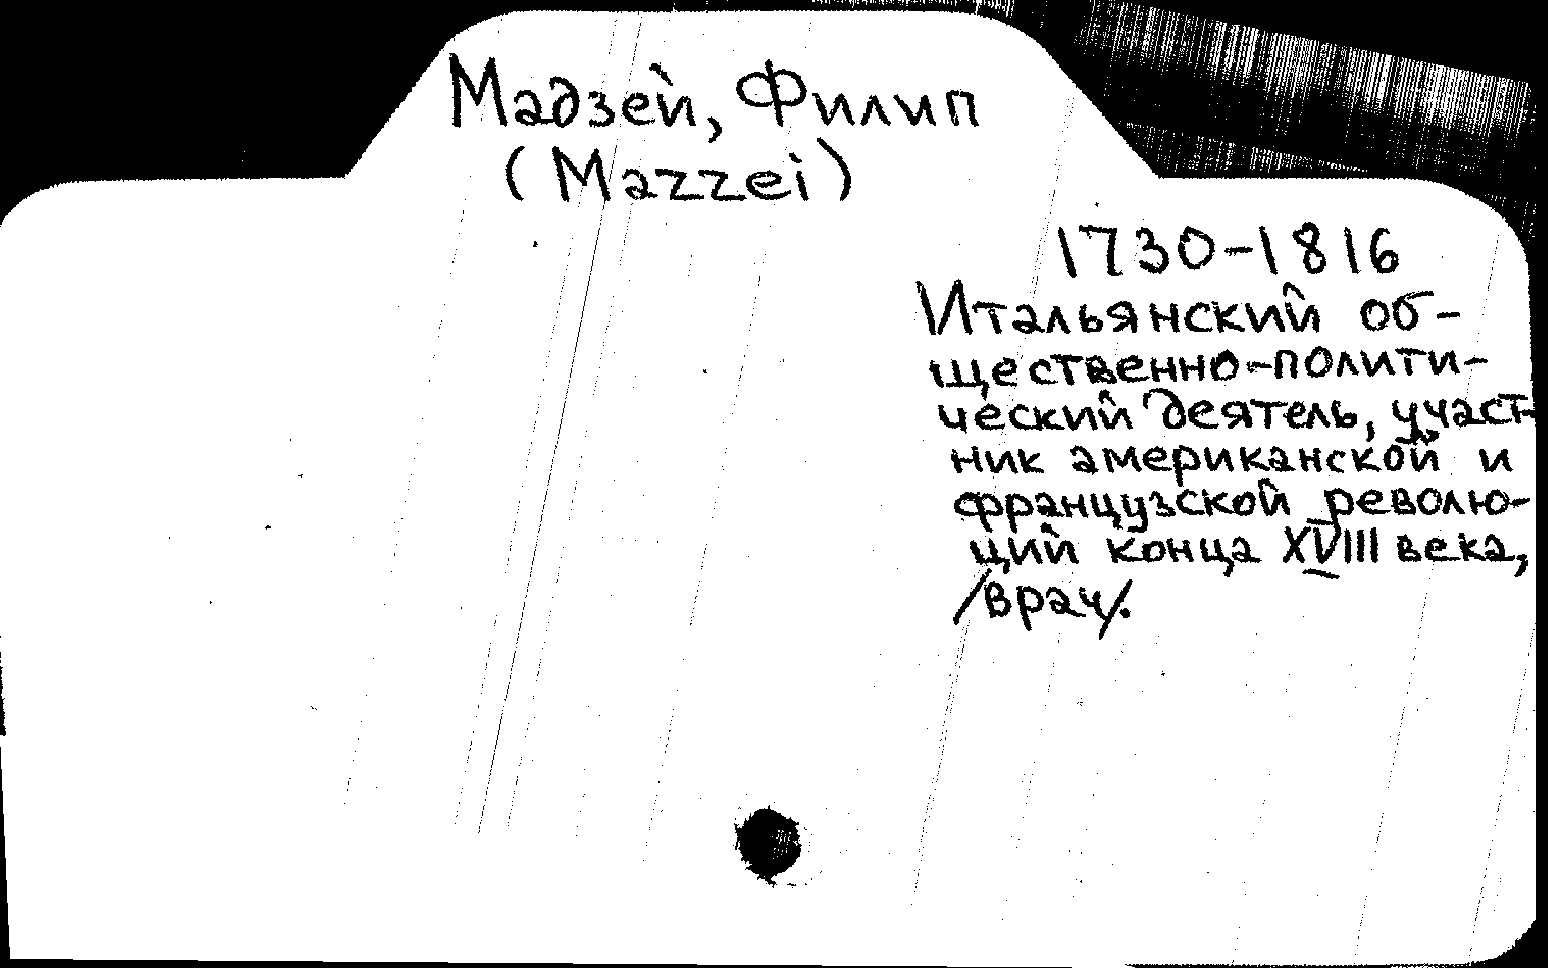 Мадзей, Филип
(Mazzei)
1730-1816
Итальянский об-
щественно-полити-
ческий деятель, участ-
ник американской и
французской револю-
ций конца XVIII века,
/врач/.